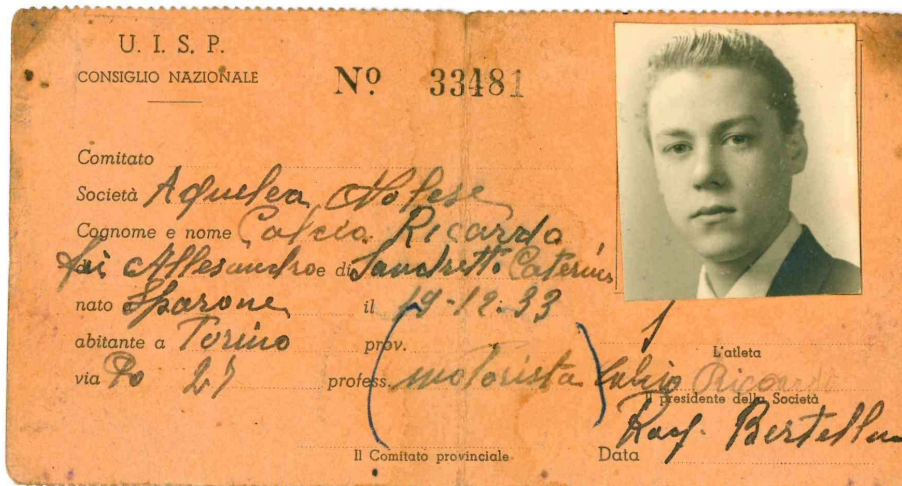 U. I. S. P.
CONSIGLIO NAZIONALE
Nº 33481
Comitato
Società Aquelea Nolese
Cognome e nome Calcio Ricardo
di fu Allesandro e di Sandretto Caterina
nato a Sparone il 19-12-33
abitante a Torino prov.
via Po 27 profess. motorista
L'atleta
Calcio Ricardo
Il presidente della Società
Rag.
Il Comitato provinciale Data